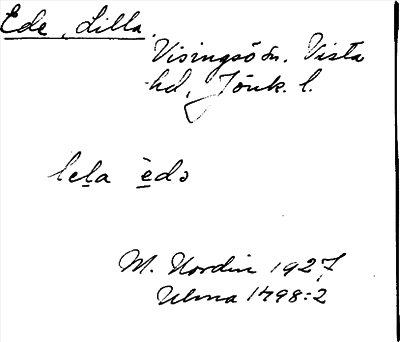 Ede, Lilla.
Visingsö sn. Vista
hd, Jönk. l.
lela èdə
M. Nordin 1927
Ulma 1498:2